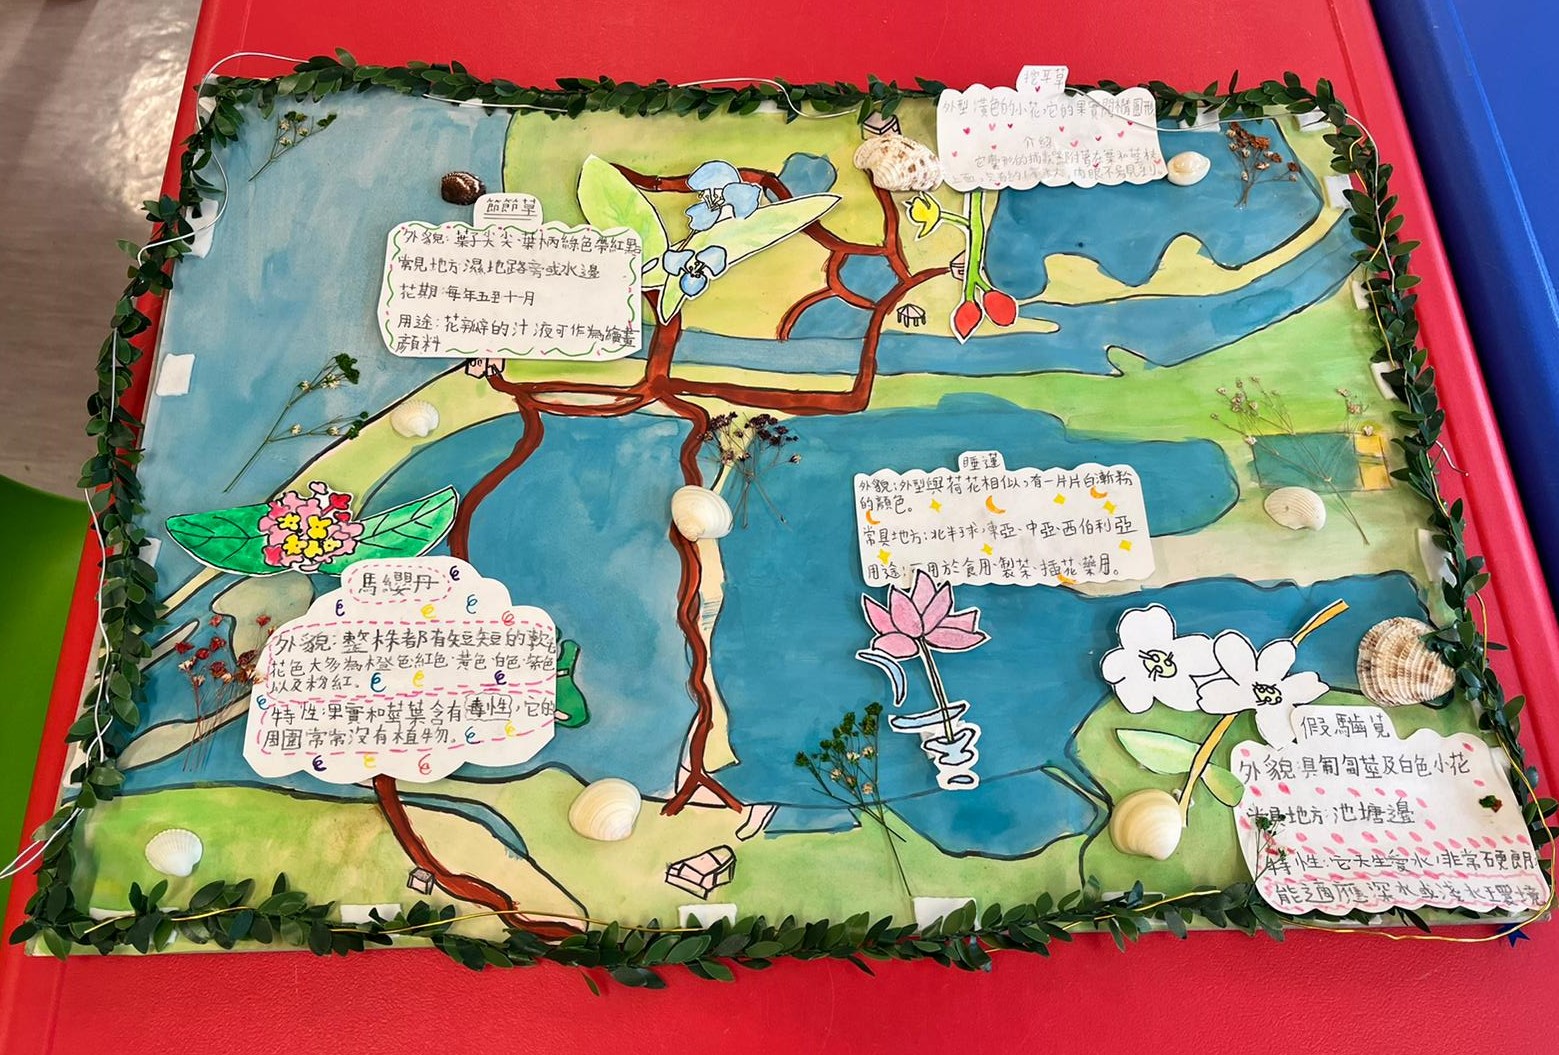 挖耳草
外型:黃色的小花,它的果實閉構圓形
介紹
節節草
外貌:葉子尖尖,葉柄綠色帶紅點
常見地方:濕地路旁或水邊
花期:每年五至十一月
用途:花瓣的汁液可作為繪畫
顏料
睡蓮
外貌:外型與荷花相似,有一片片白漸粉
的顏色。
常見地方:北半球,東亞、中亞、西伯利亞
用途:可用於食用、製茶、插花、藥用。
馬纓丹
外貌:整株都有短短的軟
花色大多為橙色、紅色、黃色、白色、紫色
以及粉紅。
特性:果實和莖葉含有毒性,它的
周圍常常沒有植物。
假馬齒莧
外貌:具匍匐莖及白色小花
常見地方:池塘邊
特性:它天生愛水,非常硬朗
能適應深水或淺水環境